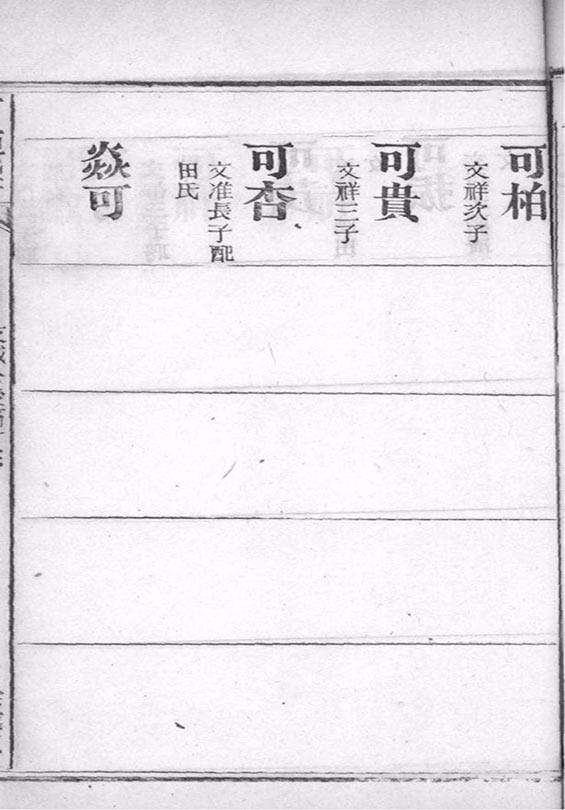 可柏
文祥次子
可貴
文祥三子
可杏
文准長子配
田氏
焱可